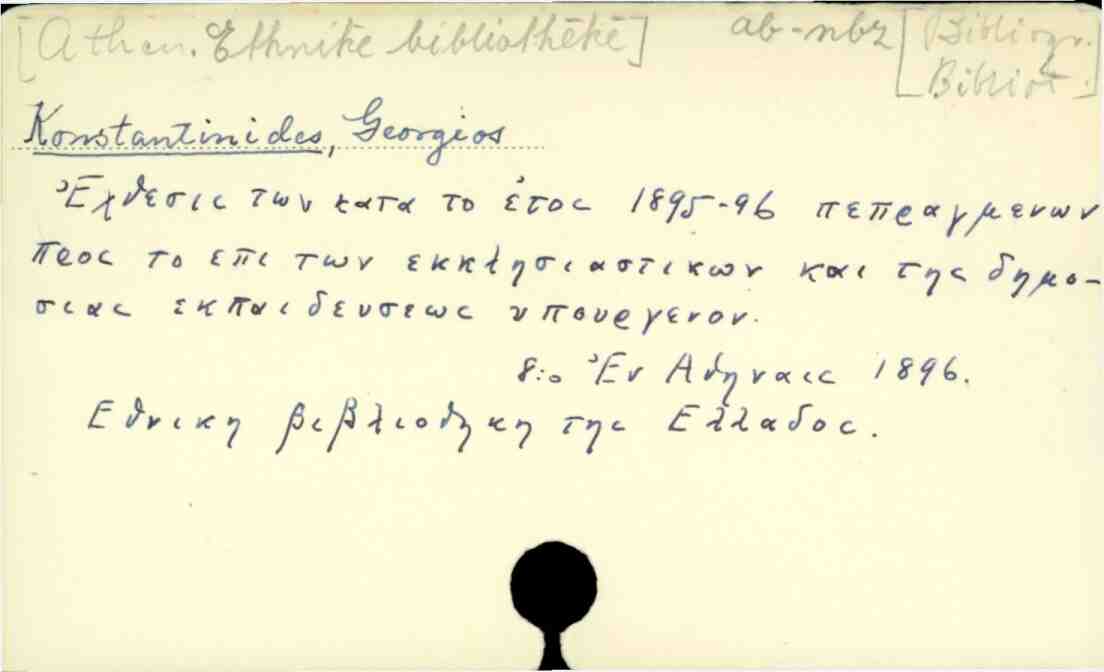 [Athen. Ethnikē bibliothēkē] ab-nbz [Bibliogr.
Bibliot.]
Konstantinides, Georgios
Ἔχθεσις των κατα το ἐτος 1895-96 πεπραγμενων
προς το επι των εκκλησιαστικων και της δημο-
σιας εκπαιδευσεως υπουργενον.
8:o Ἐν Αθηναις 1896.
Εθνικη βιβλιοθηκη της Ελλαδος.